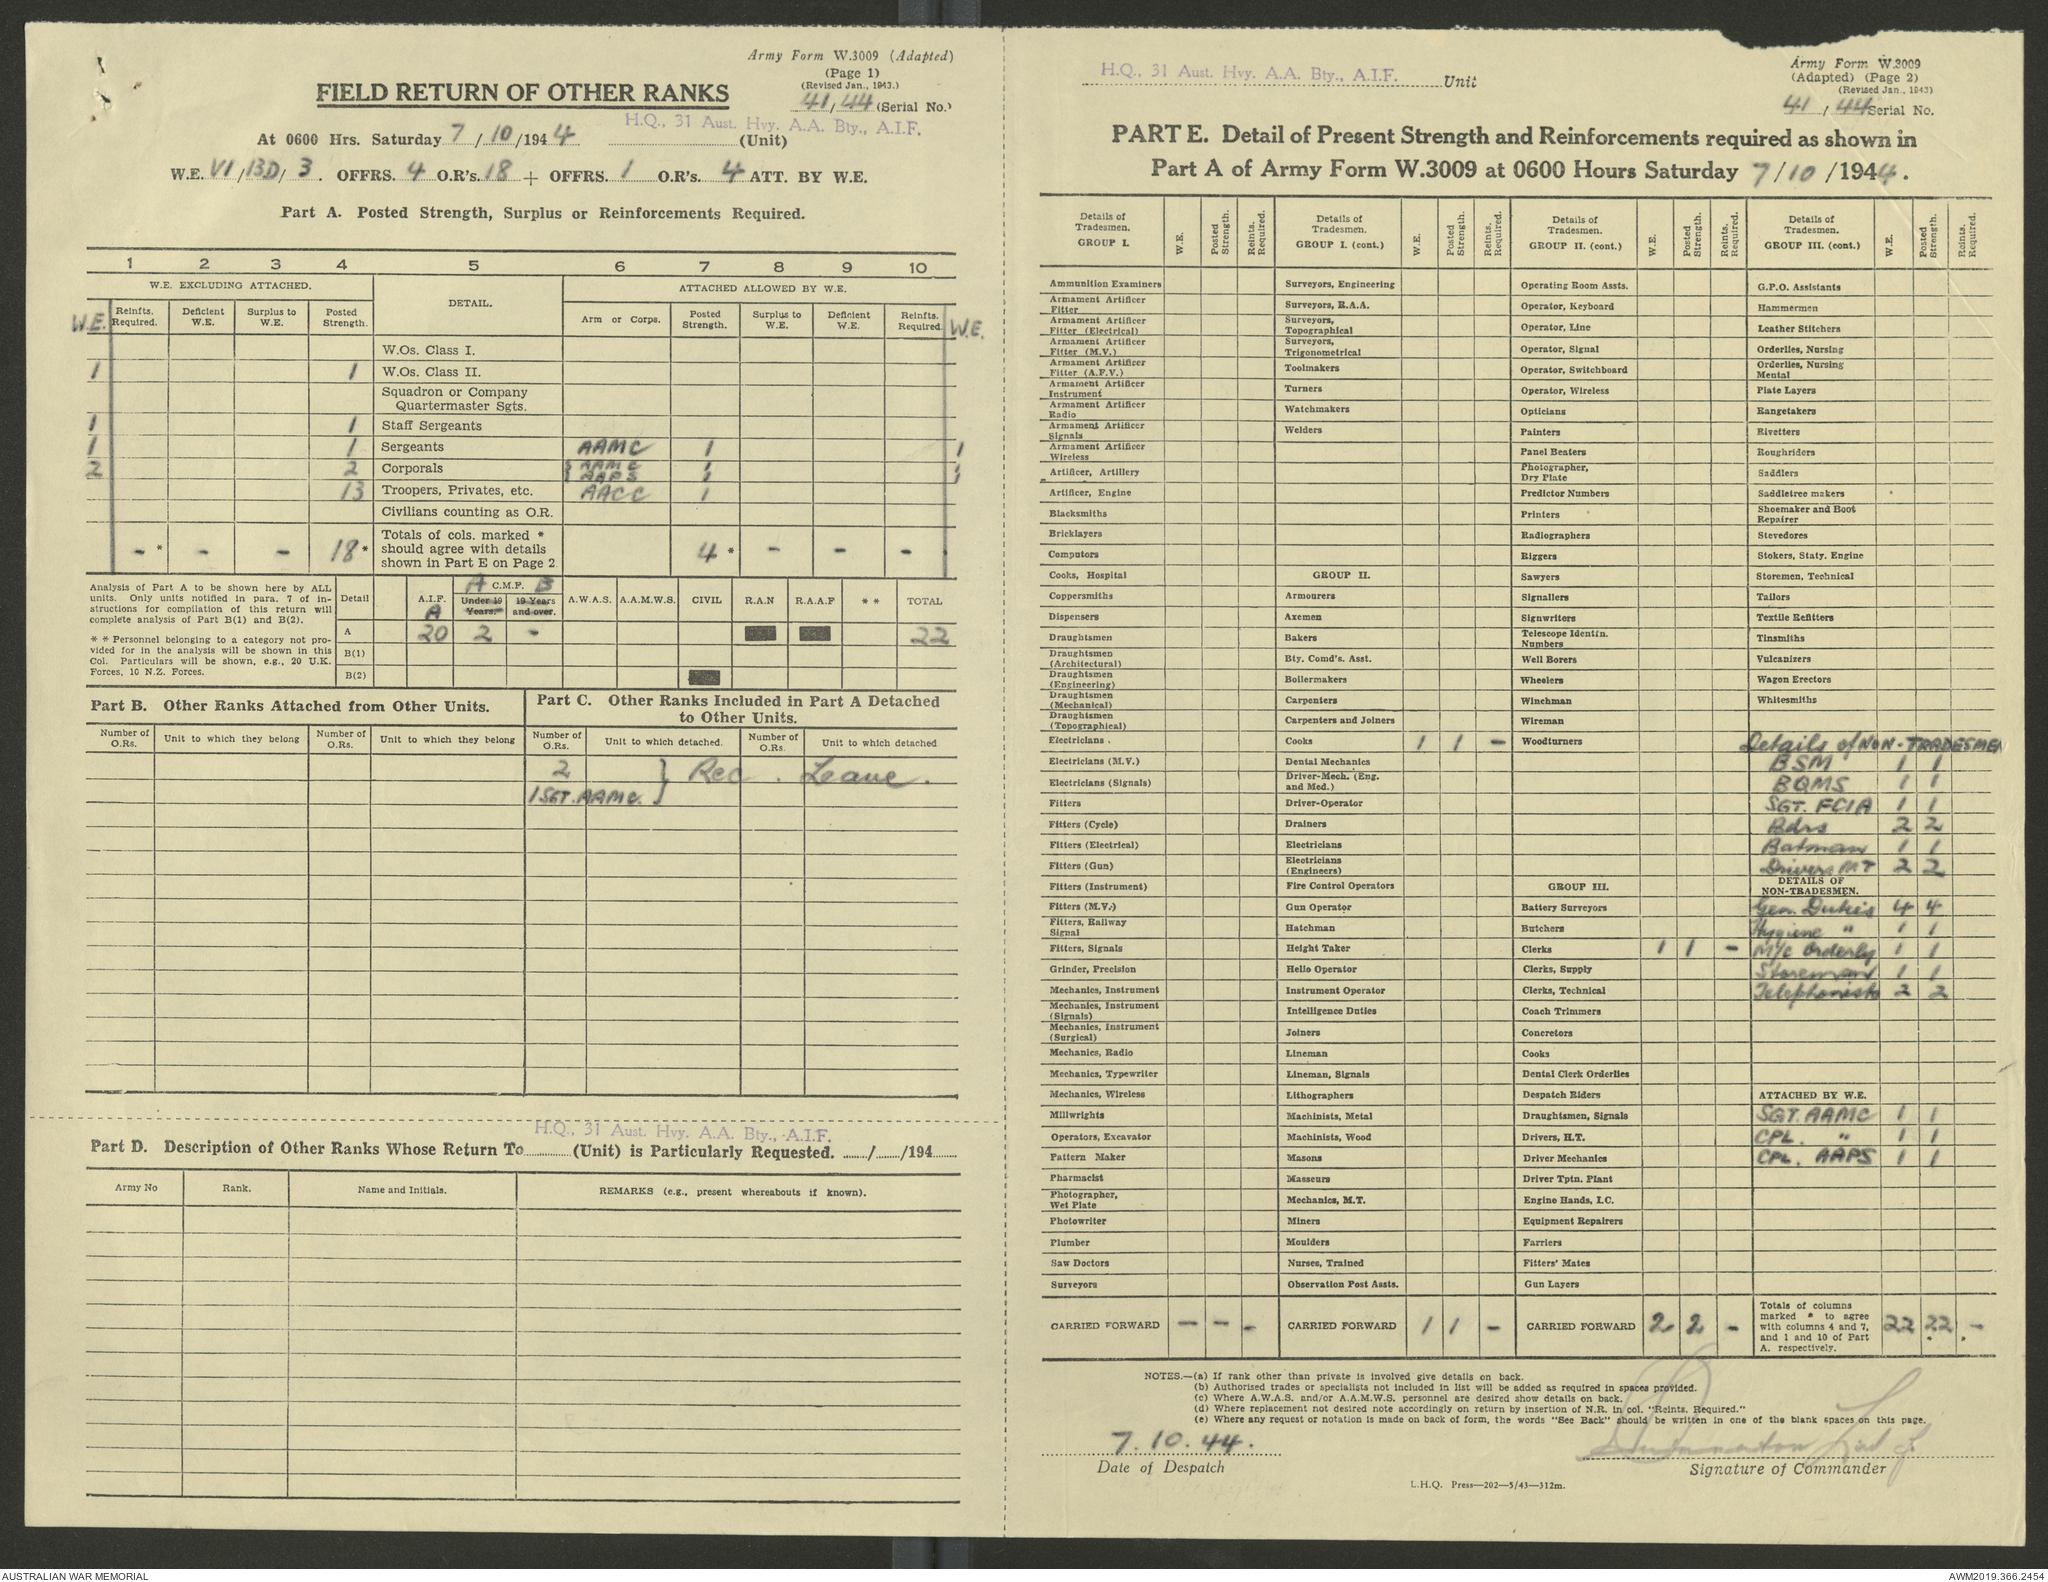 Army Form W.3009 (Adapted)
(Page 1)
(Revised Jan., 1943.)
FIELD RETURN OF OTHER RANKS
41/44 (Serial No.)
H.Q., 31 Aust. Hvy. A.A. Bty., A.I.F.
At 0600 Hrs. Saturday 7/10/1944 (Unit)
W.E. VI/13D/3. OFFRS. 4 O.R's. 18 + OFFRS. 1 O.R's. 4 ATT. BY W.E.
Part A. Posted Strength, Surplus or Reinforcements Required.
1 2 3 4 5 6 7 8 9 10
W.E. EXCLUDING ATTACHED. DETAIL. ATTACHED ALLOWED BY W.E.
W.E. Reinfts. Required. Deficient W.E. Surplus to W.E. Posted Strength. Arm or Corps. Posted Strength. Surplus to W.E. Deficient W.E. Reinfts. Required. W.E.
W.Os. Class I.
1 1 W.Os. Class II.
Squadron or Company Quartermaster Sgts.
1 1 Staff Sergeants
1 1 Sergeants AAMC 1 1
2 2 Corporals } AAMC 1 1
} AAPS 1 1
13 Troopers, Privates, etc. AACC 1
Civilians counting as O.R.
- * - - 18 * Totals of cols. marked * should agree with details shown in Part E on Page 2 4 * - - -
Analysis of Part A to be shown here by ALL units. Only units notified in para. 7 of instructions for compilation of this return will complete analysis of Part B(1) and B(2).
* * Personnel belonging to a category not provided for in the analysis will be shown in this Col. Particulars will be shown, e.g., 20 U.K. Forces, 10 N.Z. Forces.
Detail A.I.F. A A C.M.F. B Under 19 Years. 19 Years and over. A.W.A.S. A.A.M.W.S. CIVIL R.A.N R.A.A.F * * TOTAL
A 20 2 - 22
B(1)
B(2)
Part B. Other Ranks Attached from Other Units.
Part C. Other Ranks Included in Part A Detached to Other Units.
Number of O.Rs. Unit to which they belong Number of O.Rs. Unit to which they belong Number of O.Rs. Unit to which detached. Number of O.Rs. Unit to which detached
2 } Rec. Leave.
1 SGT. AAMC. }
H.Q., 31 Aust. Hvy. A.A. Bty., A.I.F.
Part D. Description of Other Ranks Whose Return To (Unit) is Particularly Requested. / /194
Army No Rank. Name and Initials. REMARKS (e.g., present whereabouts if known).
H.Q., 31 Aust. Hvy. A.A. Bty., A.I.F. Unit
Army Form W.3009
(Adapted) (Page 2)
(Revised Jan., 1943)
41/44 Serial No.
PART E. Detail of Present Strength and Reinforcements required as shown in
Part A of Army Form W.3009 at 0600 Hours Saturday 7/10/1944.
Details of Tradesmen. GROUP I. W.E. Posted Strength. Reints. Required.
Ammunition Examiners
Armament Artificer Fitter
Armament Artificer Fitter (Electrical)
Armament Artificer Fitter (M.V.)
Armament Artificer Fitter (A.F.V.)
Armament Artificer Instrument
Armament Artificer Radio
Armament Artificer Signals
Armament Artificer Wireless
Artificer, Artillery
Artificer, Engine
Blacksmiths
Bricklayers
Computors
Cooks, Hospital
Coppersmiths
Dispensers
Draughtsmen
Draughtsmen (Architectural)
Draughtsmen (Engineering)
Draughtsmen (Mechanical)
Draughtsmen (Topographical)
Electricians .
Electricians (M.V.)
Electricians (Signals)
Fitters
Fitters (Cycle)
Fitters (Electrical)
Fitters (Gun)
Fitters (Instrument)
Fitters (M.V.)
Fitters, Railway Signal
Fitters, Signals
Grinder, Precision
Mechanics, Instrument
Mechanics, Instrument (Signals)
Mechanics, Instrument (Surgical)
Mechanics, Radio
Mechanics, Typewriter
Mechanics, Wireless
Millwrights
Operators, Excavator
Pattern Maker
Pharmacist
Photographer, Wet Plate
Photowriter
Plumber
Saw Doctors
Surveyors
CARRIED FORWARD - - -
Details of Tradesmen. GROUP I. (cont.) W.E. Posted Strength. Reints. Required.
Surveyors, Engineering
Surveyors, R.A.A.
Surveyors, Topographical
Surveyors, Trigonometrical
Toolmakers
Turners
Watchmakers
Welders
GROUP II.
Armourers
Axemen
Bakers
Bty. Comd's. Asst.
Boilermakers
Carpenters
Carpenters and Joiners
Cooks 1 1 -
Dental Mechanics
Driver-Mech. (Eng. and Med.)
Driver-Operator
Drainers
Electricians
Electricians (Engineers)
Fire Control Operators
Gun Operator
Hatchman
Height Taker
Hello Operator
Instrument Operator
Intelligence Duties
Joiners
Lineman
Lineman, Signals
Lithographers
Machinists, Metal
Machinists, Wood
Masons
Masseurs
Mechanics, M.T.
Miners
Moulders
Nurses, Trained
Observation Post Assts.
CARRIED FORWARD 1 1 -
Details of Tradesmen. GROUP II. (cont.) W.E. Posted Strength. Reints. Required.
Operating Room Assts.
Operator, Keyboard
Operator, Line
Operator, Signal
Operator, Switchboard
Operator, Wireless
Opticians
Painters
Panel Beaters
Photographer, Dry Plate
Predictor Numbers
Printers
Radiographers
Riggers
Sawyers
Signallers
Signwriters
Telescope Identin. Numbers
Well Borers
Wheelers
Winchman
Wireman
Woodturners
GROUP III.
Battery Surveyors
Butchers
Clerks 1 1 -
Clerks, Supply
Clerks, Technical
Coach Trimmers
Concretors
Cooks
Dental Clerk Orderlies
Despatch Riders
Draughtsmen, Signals
Drivers, H.T.
Driver Mechanics
Driver Tptn. Plant
Engine Hands, I.C.
Equipment Repairers
Farriers
Fitters' Mates
Gun Layers
CARRIED FORWARD 2 2 -
Details of Tradesmen. GROUP III. (cont.) W.E. Posted Strength. Reints. Required.
G.P.O. Assistants
Hammermen
Leather Stitchers
Orderlies, Nursing
Orderlies, Nursing Mental
Plate Layers
Rangetakers
Rivetters
Roughriders
Saddlers
Saddletree makers
Shoemaker and Boot Repairer
Stevedores
Stokers, Staty. Engine
Storemen, Technical
Tailors
Textile Refitters
Tinsmiths
Vulcanizers
Wagon Erectors
Whitesmiths
Details of NON-TRADESMEN
BSM 1 1
BQMS 1 1
SGT. FCIA 1 1
Bdrs 2 2
Batman 1 1
Drivers MT 2 2
DETAILS OF NON-TRADESMEN.
Gen. Duties 4 4
Hygiene " 1 1
M/C Orderly 1 1
Storeman 1 1
Telephonists 2 2
ATTACHED BY W.E.
SGT. AAMC 1 1
CPL. " 1 1
CPL. AAPS 1 1
Totals of columns marked * to agree with columns 4 and 7, and 1 and 10 of Part A. respectively. 22 22 -
NOTES.—(a) If rank other than private is involved give details on back.
(b) Authorised trades or specialists not included in list will be added as required in spaces provided.
(c) Where A.W.A.S. and/or A.A.M.W.S. personnel are desired show details on back.
(d) Where replacement not desired note accordingly on return by insertion of N.R. in col. "Reints. Required."
(e) Where any request or notation is made on back of form, the words "See Back" should be written in one of the blank spaces on this page.
7.10.44.
Date of Despatch
Signature of Commander
L.H.Q. Press—202—5/43—312m.
AUSTRALIAN WAR MEMORIAL
AWM2019.366.2454